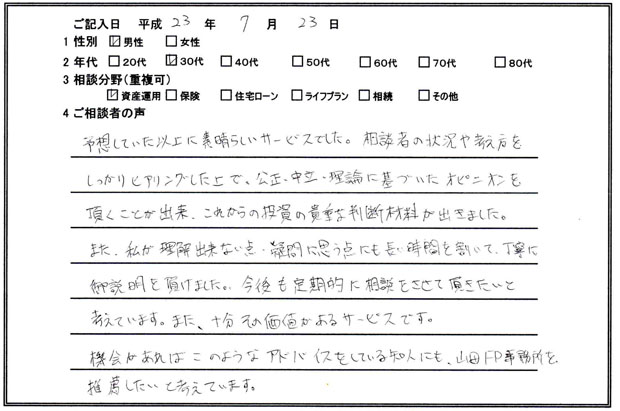 ご記入日 平成 23 年 7 月 23 日
1 性別 ☑男性 □女性
2 年代 □20代 ☑30代 □40代 □50代 □60代 □70代 □80代
3 相談分野(重複可)
☑資産運用 □保険 □住宅ローン □ライフプラン □相続 □その他
4 ご相談者の声
予想していた以上に素晴らしいサービスでした。相談者の状況や考え方を
しっかりヒアリングした上で、公正・中立・理論に基づいたオピニオンを
頂くことが出来、これからの投資の貴重な判断材料が出きました。
また、私が理解出来ない点・疑問に思う点にも長い時間を割いて、丁寧に
御説明を頂けました。今後も定期的に相談をさせて頂きたいと
考えています。また、十分その価値があるサービスです。
機会があればこのようなアドバイスをしている知人にも、山田FP事務所を
推薦したいと考えています。